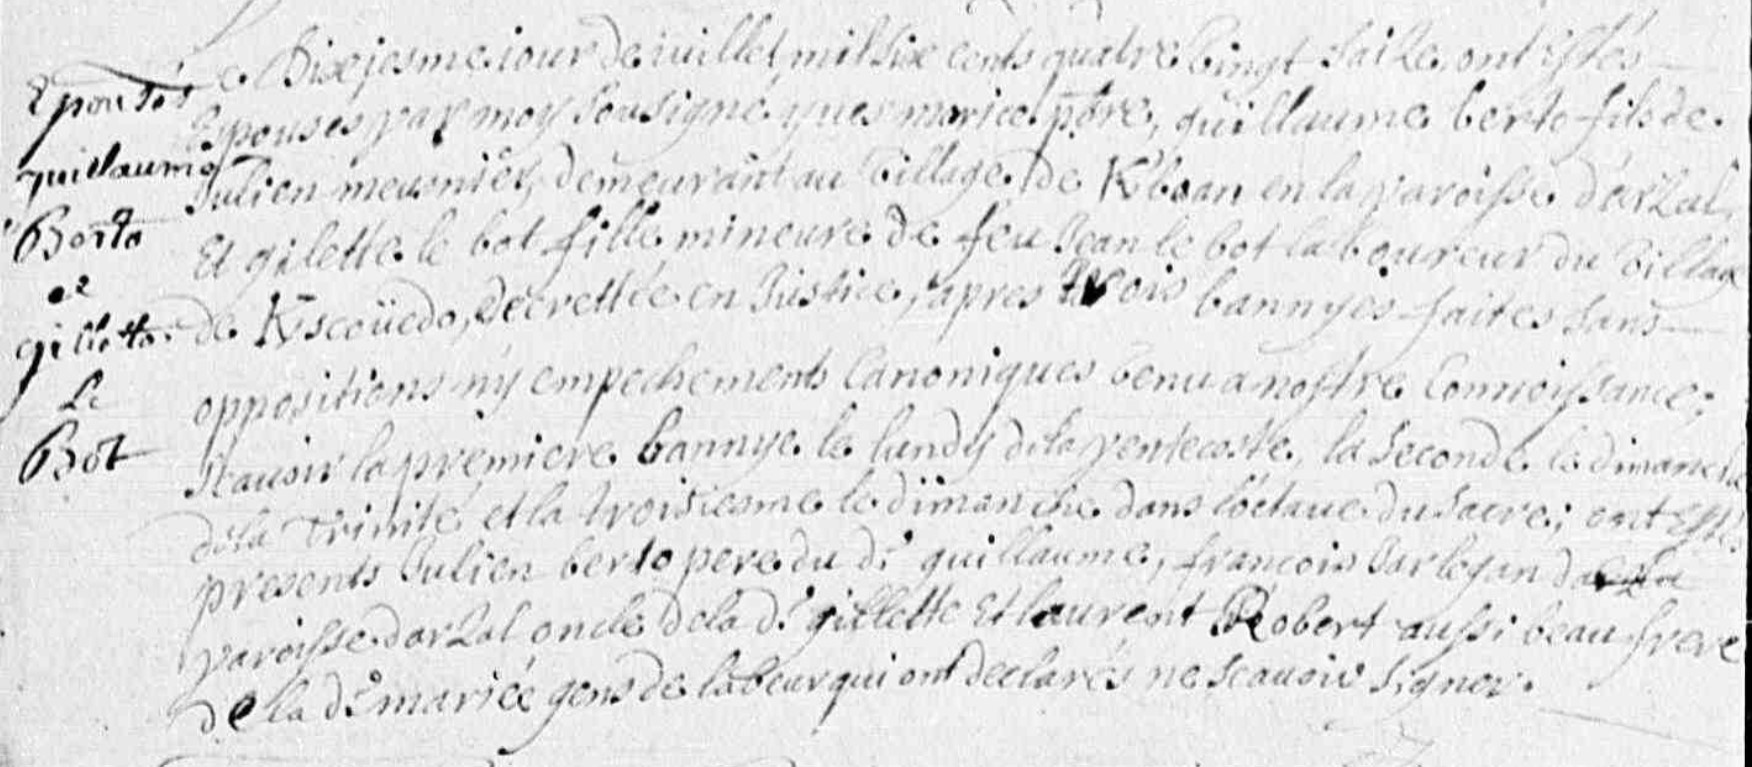 Epousés
guillaume
Berto
et
gillette
Le
Bot
Dixiesme iour de iuillet mil six cents quatre vingt saize ont Estés
Epousés par moy sousigné yues ptbre, guillaume berto fils de
Julien meusnier, demeurant au village de K/boan en la paroisse d'arzal,
Et gilette le bot fille mineure de feu Jean le bot laboureur du village
de K/scoüedo, decrettée en Justice, apres trois bannyes faites sans
oppositions ny empechements Canoniques venu a nostre Connoissance;
scauoir la premiere bannye le lundy dela pentecoste, la seconde le dimanche
dela Trinité et la troisiesme le dimanche dans l'octaue du sacre; ont Esté
presents Julien berto pere du dt guillaume, francois
paroisse d'arzal oncle dela dt gillette Et laurent Robert aussi beau frere
de la dt mariée gens de labeur qui ont declarés ne scauoir signer.